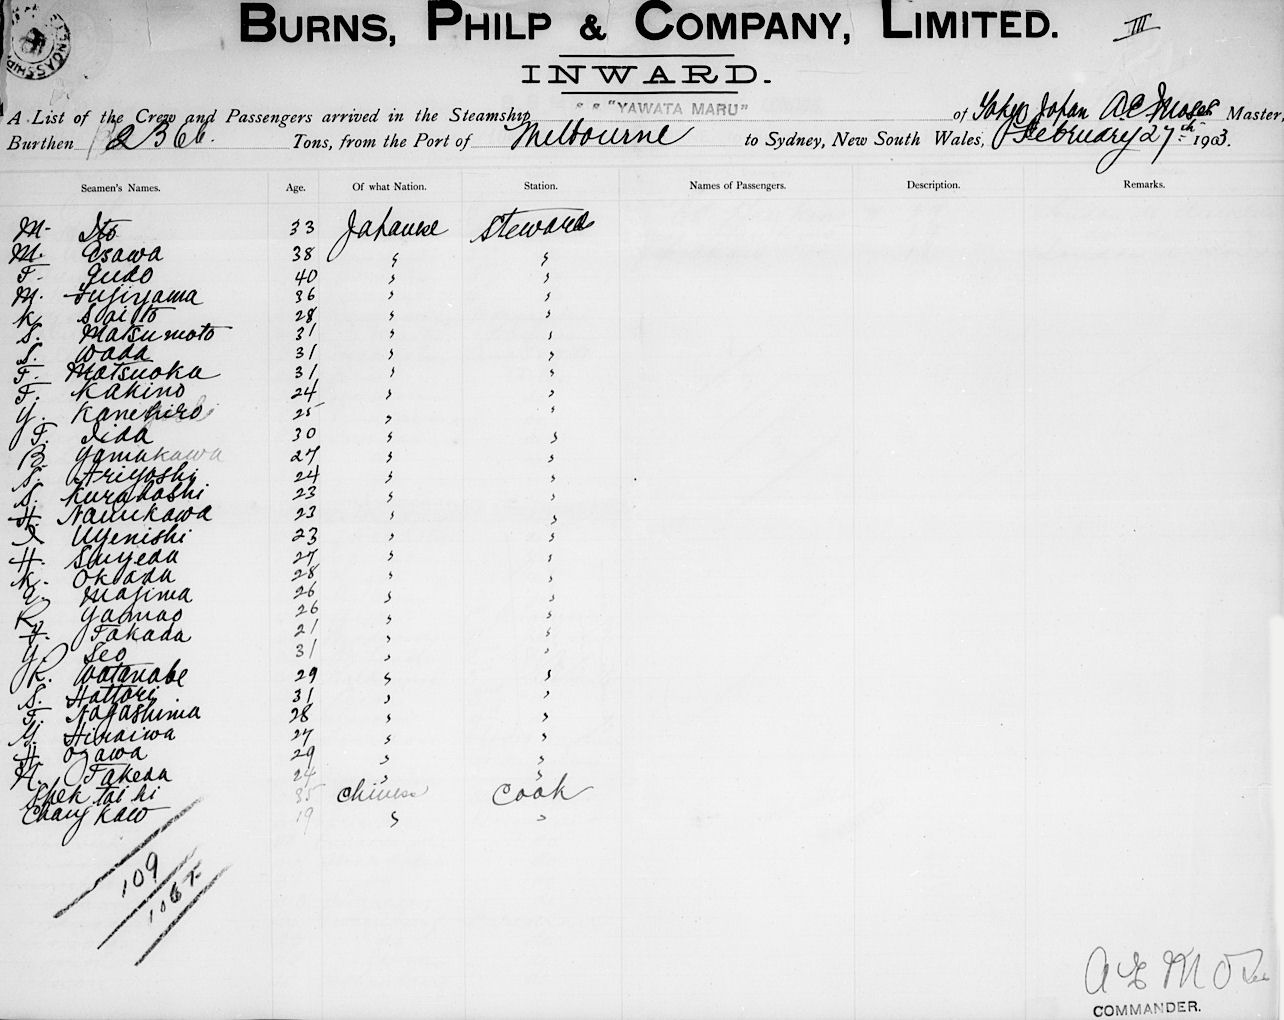 BURNS, PHILP & COMPANY, LIMITED.
III
INWARD.
A List of the Crew and Passengers arrived in the Steamship S S "YAWATA MARU" of Tokyo Japan A E Moses Master,
Burthen 2366. Tons, from the Port of Melbourne to Sydney, New South Wales, February 27th 1903.
Seamen's Names. Age. Of what Nation. Station. Names of Passengers. Description. Remarks.
M. Ito 33 Japanese Steward
M. Osawa 38 " "
F. Gudo 40 " "
M. Fujiyama 36 " "
K. Saito 28 " "
S. Matsumoto 31 " "
S. Wada 31 " "
F. Matsuoka 31 " "
F. Kakino 24 " "
Y. Kanehiro 25 " "
F. Iida 30 " "
B. Yamakawa 27 " "
S. Ariyoshi 24 " "
S. Kurahashi 23 " "
H. Namikawa 23 " "
Uyenishi 23 " "
H. Suyeda 27 " "
K. Okada 28 " "
Majima 26 " "
R. Yamao 26 " "
Y. Takada 21 " "
Y. Seo 31 " "
K. Watanabe 29 " "
S. Hattori 31 " "
F. Nagashima 28 " "
Y. Hiraiwa 27 " "
H. Ozawa 29 " "
H. Takeda 24 " "
Shek tai hi 35 Chinese Cook
Chang Kaw 19 " "
109
106
COMMANDER.